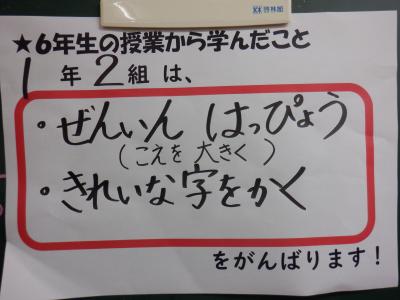 啓林館
★6年生の授業から学んだこと
1年2組は、
・ぜんいん はっぴょう
(こえを 大きく)
・きれいな字をかく
をがんばります！